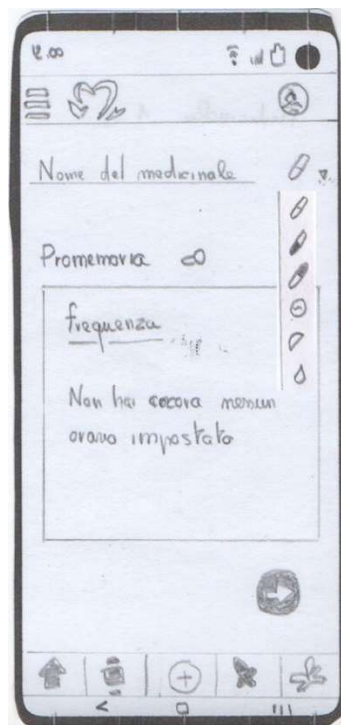 12.00
Nome del medicinale
Promemoria
frequenza
Non hai ancora nessun
orario impostato